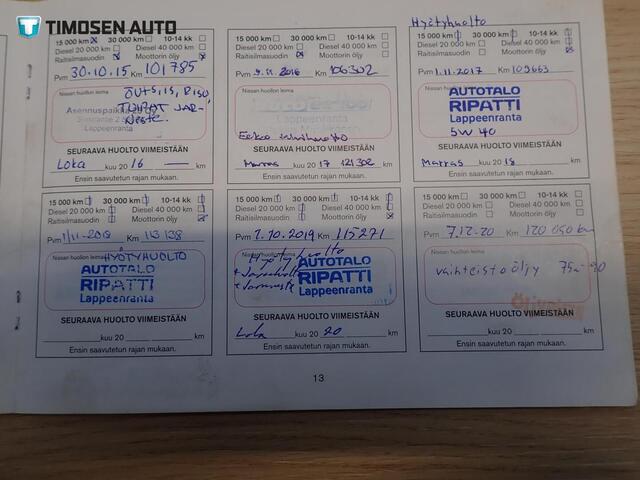 TIMOSEN AUTO
15 000 km 30 000 km 10-14 kk
Diesel 20 000 km Diesel 40 000 km
Raitisilmasuodin Moottorin öljy
Pvm 30.10.15 Km 101 785
Nissan huollon leima
Asennuspaikka
Lappeenranta
SEURAAVA HUOLTO VIIMEISTÄÄN
Loka kuu 20 16 — km
Ensin saavutetun rajan mukaan.
15 000 km 30 000 km 10-14 kk
Diesel 20 000 km Diesel 40 000 km
Raitisilmasuodin Moottorin öljy
Pvm 9.11.2016 Km 106302
Nissan huollon leima
SEURAAVA HUOLTO VIIMEISTÄÄN
Marras kuu 20 17 121302 km
Ensin saavutetun rajan mukaan.
Hyötyhuolto
15 000 km 30 000 km 10-14 kk
Diesel 20 000 km Diesel 40 000 km
Raitisilmasuodin Moottorin öljy
Pvm 1.11.2017 Km 109663
Nissan huollon leima
AUTOTALO
RIPATTI
Lappeenranta
5W40
SEURAAVA HUOLTO VIIMEISTÄÄN
Marras kuu 20 18 km
Ensin saavutetun rajan mukaan.
15 000 km 30 000 km 10-14 kk
Diesel 20 000 km Diesel 40 000 km
Raitisilmasuodin Moottorin öljy
Pvm 1/11-2018 Km 113 138
Nissan huollon leima
HYÖTYHUOLTO
AUTOTALO
RIPATTI
Lappeenranta
SEURAAVA HUOLTO VIIMEISTÄÄN
kuu 20 km
Ensin saavutetun rajan mukaan.
15 000 km 30 000 km 10-14 kk
Diesel 20 000 km Diesel 40 000 km
Raitisilmasuodin Moottorin öljy
Pvm 2.10.2019 Km 115271
Nissan huollon leima
Hyötyhuolto
AUTOTALO
RIPATTI
Lappeenranta
SEURAAVA HUOLTO VIIMEISTÄÄN
Loka kuu 20 20 km
Ensin saavutetun rajan mukaan.
15 000 km 30 000 km 10-14 kk
Diesel 20 000 km Diesel 40 000 km
Raitisilmasuodin Moottorin öljy
Pvm 7.12-20 Km
Nissan huollon leima
vaihteisto öljy 75w-90
SEURAAVA HUOLTO VIIMEISTÄÄN
kuu 20 km
Ensin saavutetun rajan mukaan.
13